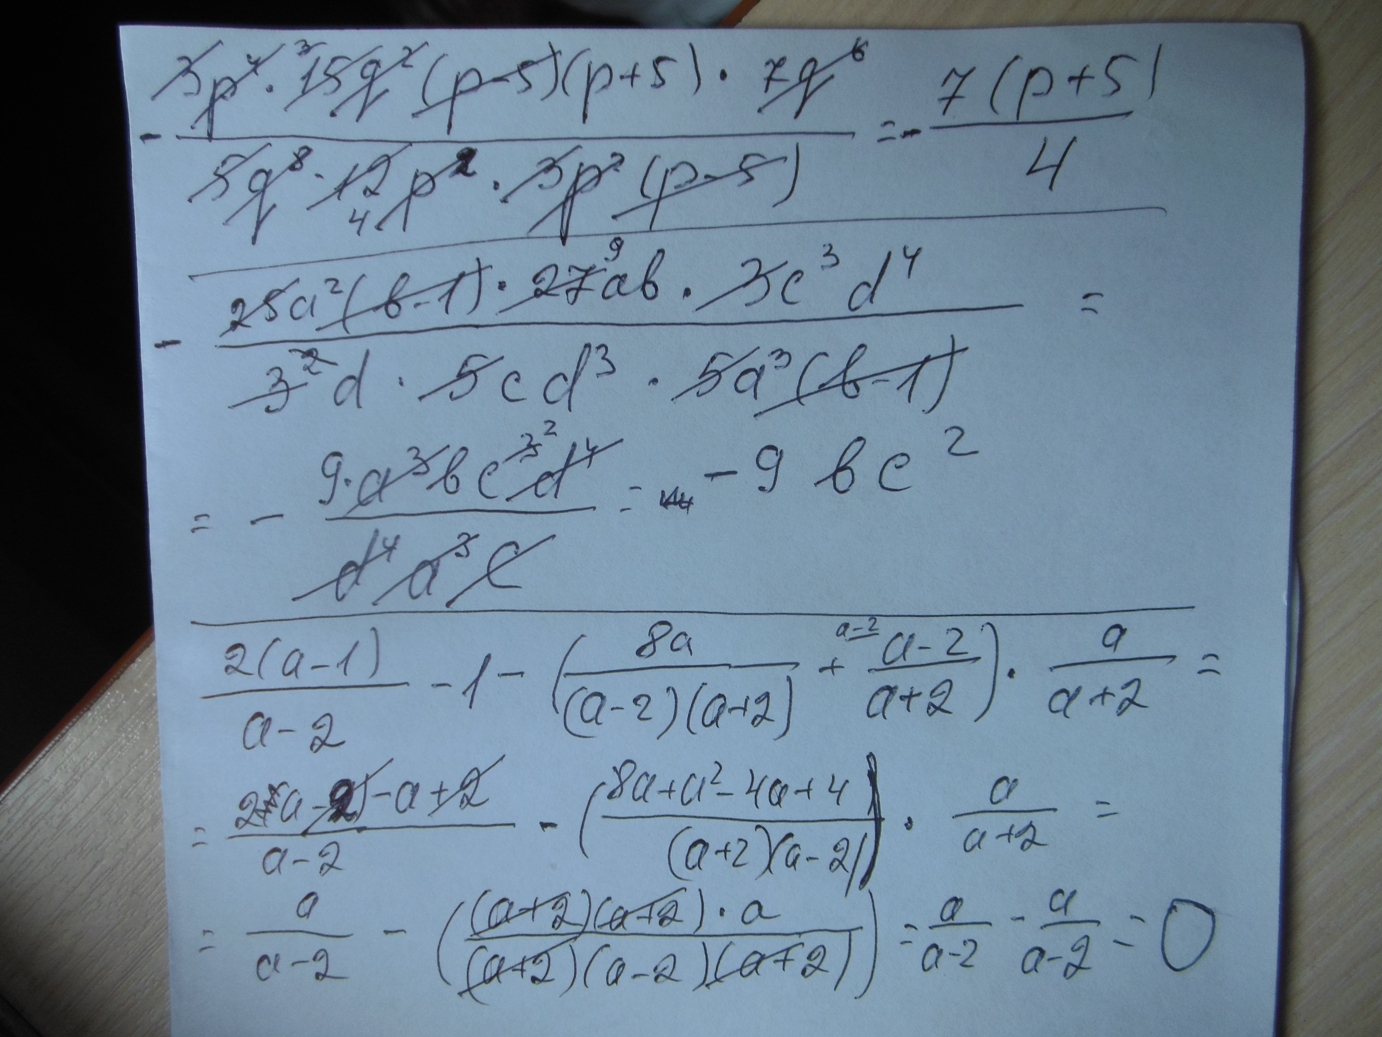 - \frac{3p^7 \cdot 15q^2(p-5)(p+5) \cdot 7q^6}{5q^8 \cdot 12p^2 \cdot 3p^2(p-5)} = -\frac{7(p+5)}{4}
- \frac{25a^2(b-1) \cdot 27ab \cdot 3c^3d^4}{3^2d \cdot 5cd^3 \cdot 5a^3(b-1)} =
= - \frac{9 \cdot a^3bc^3d^4}{d^4a^3c} = -9bc^2
\frac{2(a-1)}{a-2} - 1 - (\frac{8a}{(a-2)(a+2)} + \frac{a-2}{a+2}) \cdot \frac{a}{a+2} =
= \frac{2a-2-a+2}{a-2} - (\frac{8a+a^2-4a+4}{(a+2)(a-2)}) \cdot \frac{a}{a+2} =
= \frac{a}{a-2} - (\frac{(a+2)(a+2) \cdot a}{(a+2)(a-2)(a+2)}) = \frac{a}{a-2} - \frac{a}{a-2} = 0